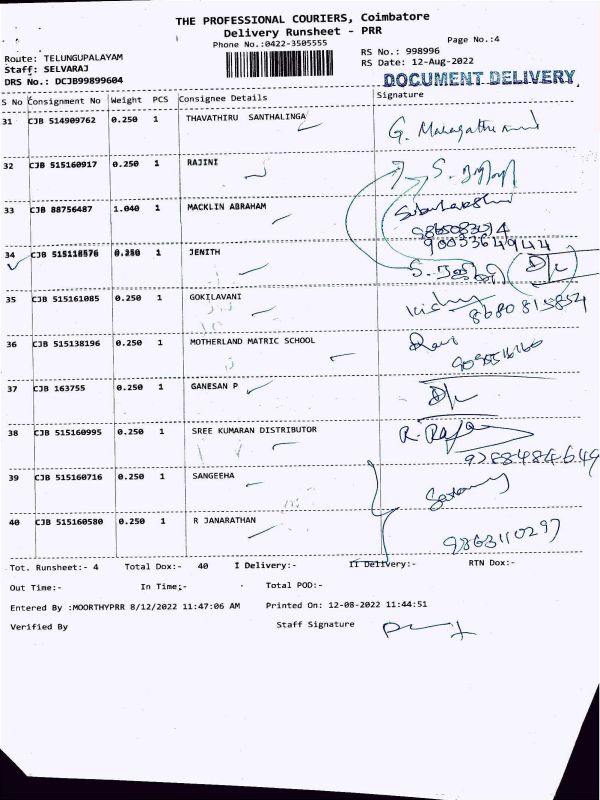 THE PROFESSIONAL COURIERS, Coimbatore
Delivery Runsheet - PRR
Phone No.:0422-3505555
Page No.:4
Route: TELUNGUPALAYAM
RS No.: 998996
Staff: SELVARAJ
RS Date: 12-Aug-2022
DRS No.: DCJB99899604
DOCUMENT DELIVERY
S No Consignment No Weight PCS Consignee Details Signature
31 CJB 514909762 0.250 1 THAVATHIRU SANTHALINGA
32 CJB 515160917 0.250 1 RAJINI
33 CJB 88756487 1.040 1 MACKLIN ABRAHAM
9003364944
34 CJB 515118576 0.250 1 JENITH
D/L
35 CJB 515161085 0.250 1 GOKILAVANI
8680815854
36 CJB 515138196 0.250 1 MOTHERLAND MATRIC SCHOOL
Ravi
37 CJB 163755 0.250 1 GANESAN P
D/L
38 CJB 515160995 0.250 1 SREE KUMARAN DISTRIBUTOR
R. Raja
9288484649
39 CJB 515160716 0.250 1 SANGEEHA
40 CJB 515160580 0.250 1 R JANARATHAN
9863110297
Tot. Runsheet:- 4 Total Dox:- 40 I Delivery:- II Delivery:- RTN Dox:-
Out Time:- In Time;- Total POD:-
Entered By :MOORTHYPRR 8/12/2022 11:47:06 AM Printed On: 12-08-2022 11:44:51
Verified By Staff Signature